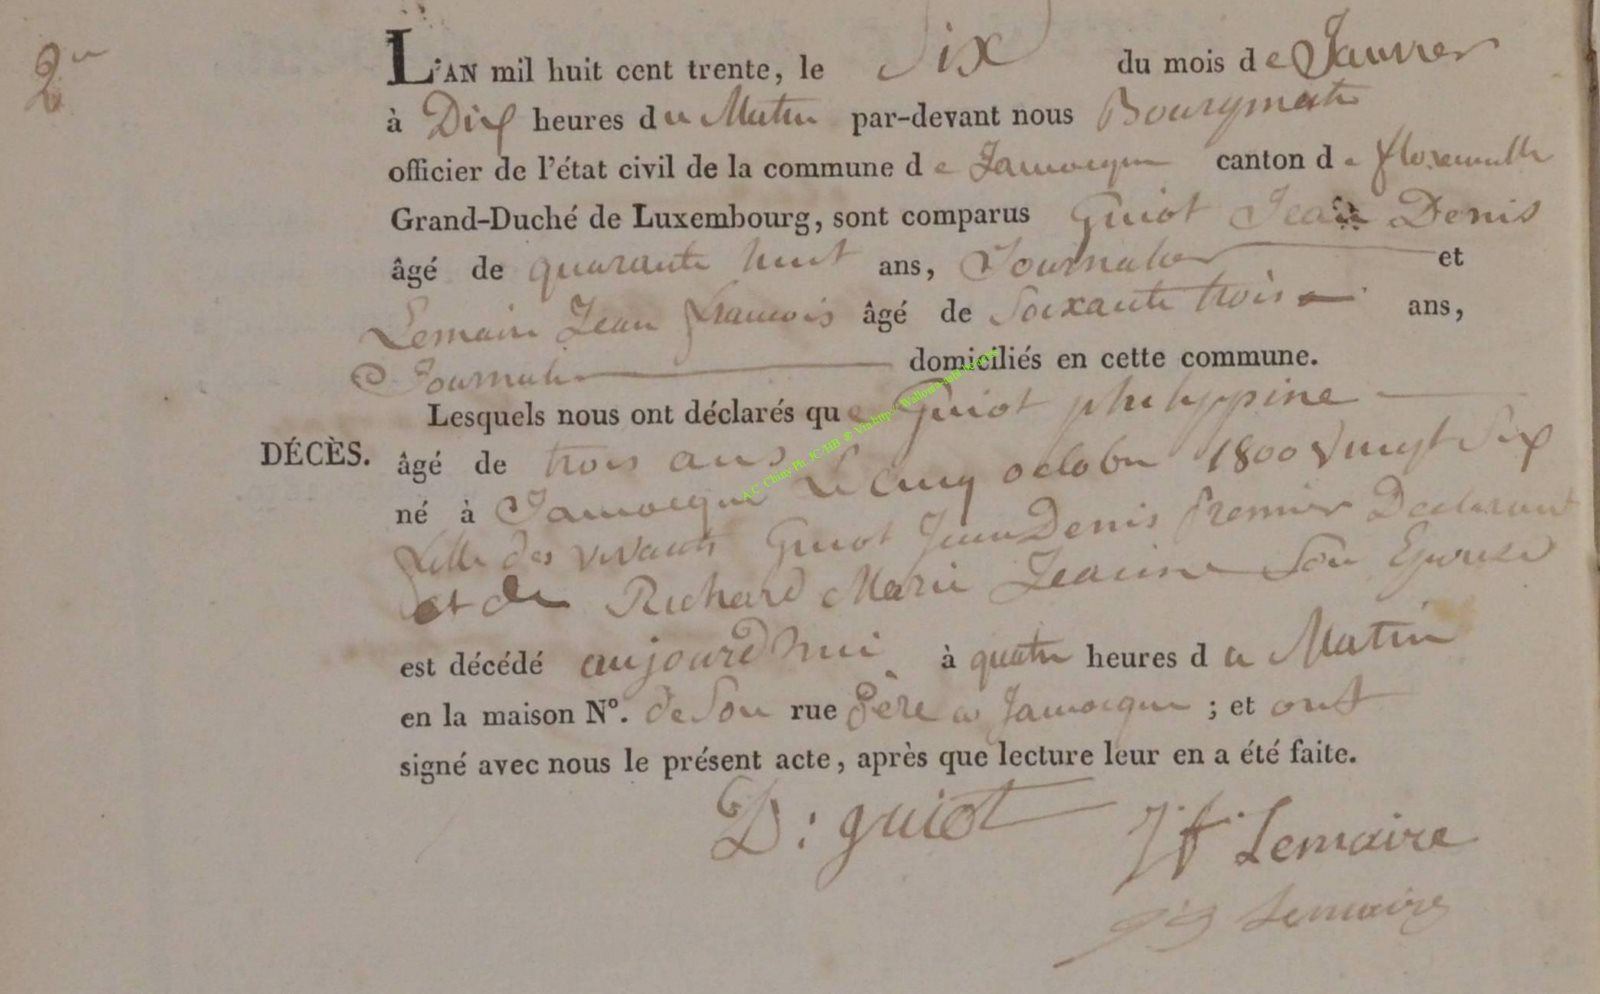 2
L'AN mil huit cent trente, le Six du mois de Janvier
à Dix heures du Matin par-devant nous Bourgmestre
officier de l'état civil de la commune de Jamoigne canton de florenville
Grand-Duché de Luxembourg, sont comparus Guiot Jean Denis
âgé de quarante huit ans, Journalier et
Lemaire Jean francois âgé de Soixante trois ans,
Journalier domiciliés en cette commune.
Lesquels nous ont déclarés que Guiot philippine
DÉCÈS. âgé de trois ans
né à Jamoigne Le cinq octobre 1800 vingt Six
fille des vivants Guiot Jean Denis premier Declarant
et de Richard Marie Jeanne Son Epouse
est décédé aujourd'hui à quatre heures du Matin
en la maison N°. de Son rue père a Jamoigne ; et ont
signé avec nous le présent acte, après que lecture leur en a été faite.
D: guiot
Jf Lemaire
Lemaire